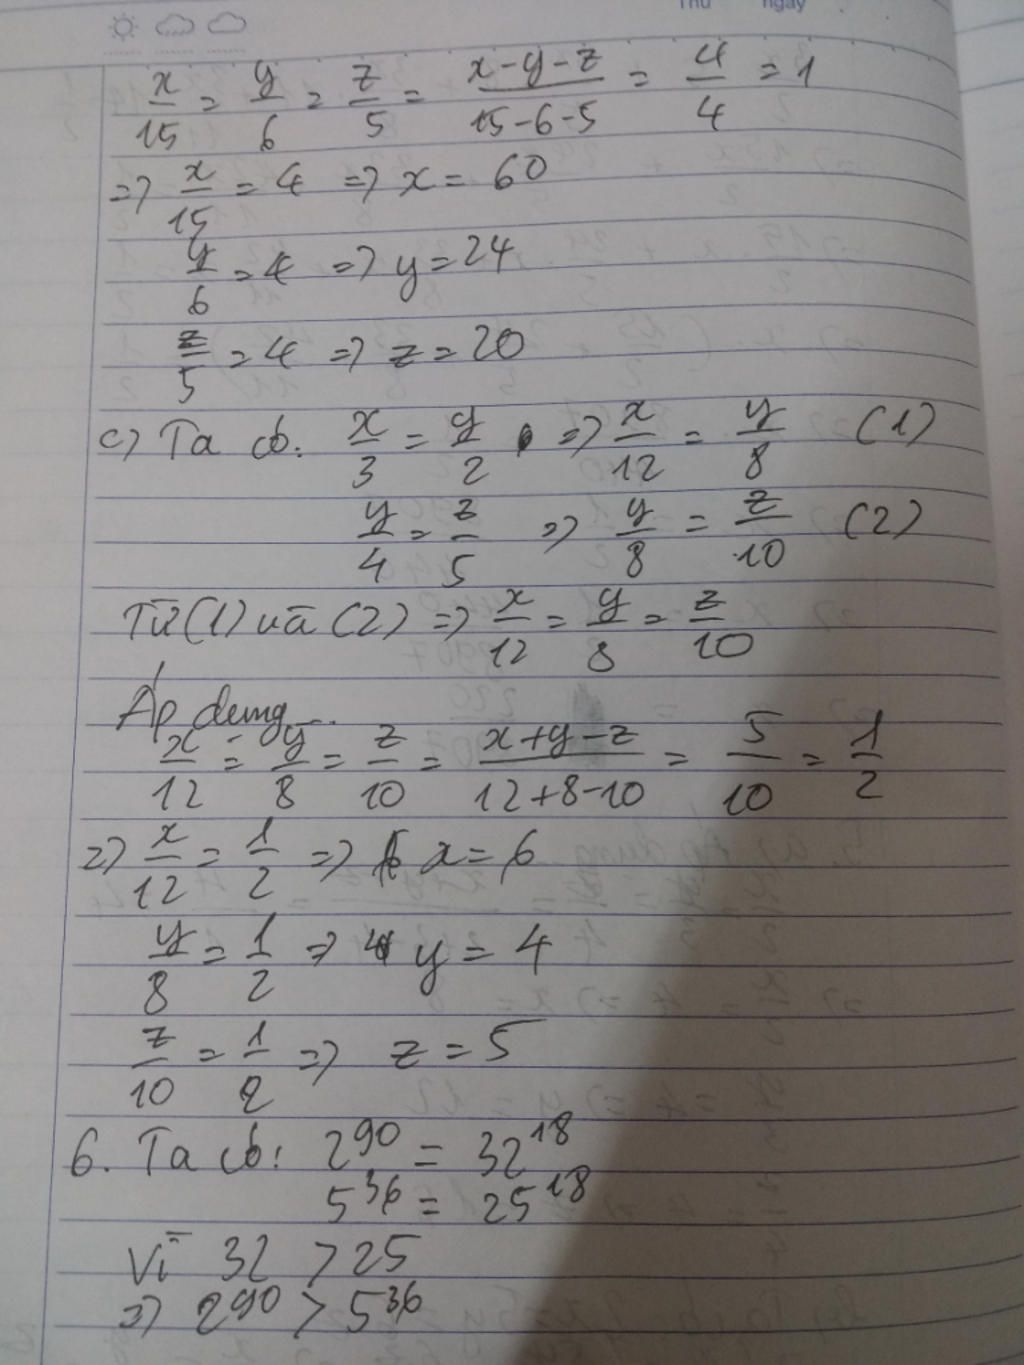 Thứ ngày
x/15 = y/6 = z/5 = x-y-z/15-6-5 = 4/4 = 1
=> x/15 = 4 => x = 60
y/6 = 4 => y = 24
z/5 = 4 => z = 20
c) Ta có: x/3 = y/2 => x/12 = y/8 (1)
y/4 = z/5 => y/8 = z/10 (2)
Từ (1) và (2) => x/12 = y/8 = z/10
Áp dụng...
x/12 = y/8 = z/10 = x+y-z/12+8-10 = 5/10 = 1/2
=> x/12 = 1/2 => x = 6
y/8 = 1/2 => y = 4
z/10 = 1/2 => z = 5
6. Ta có: 2^90 = 32^18
5^36 = 25^18
Vì 32 > 25
=> 2^90 > 5^36